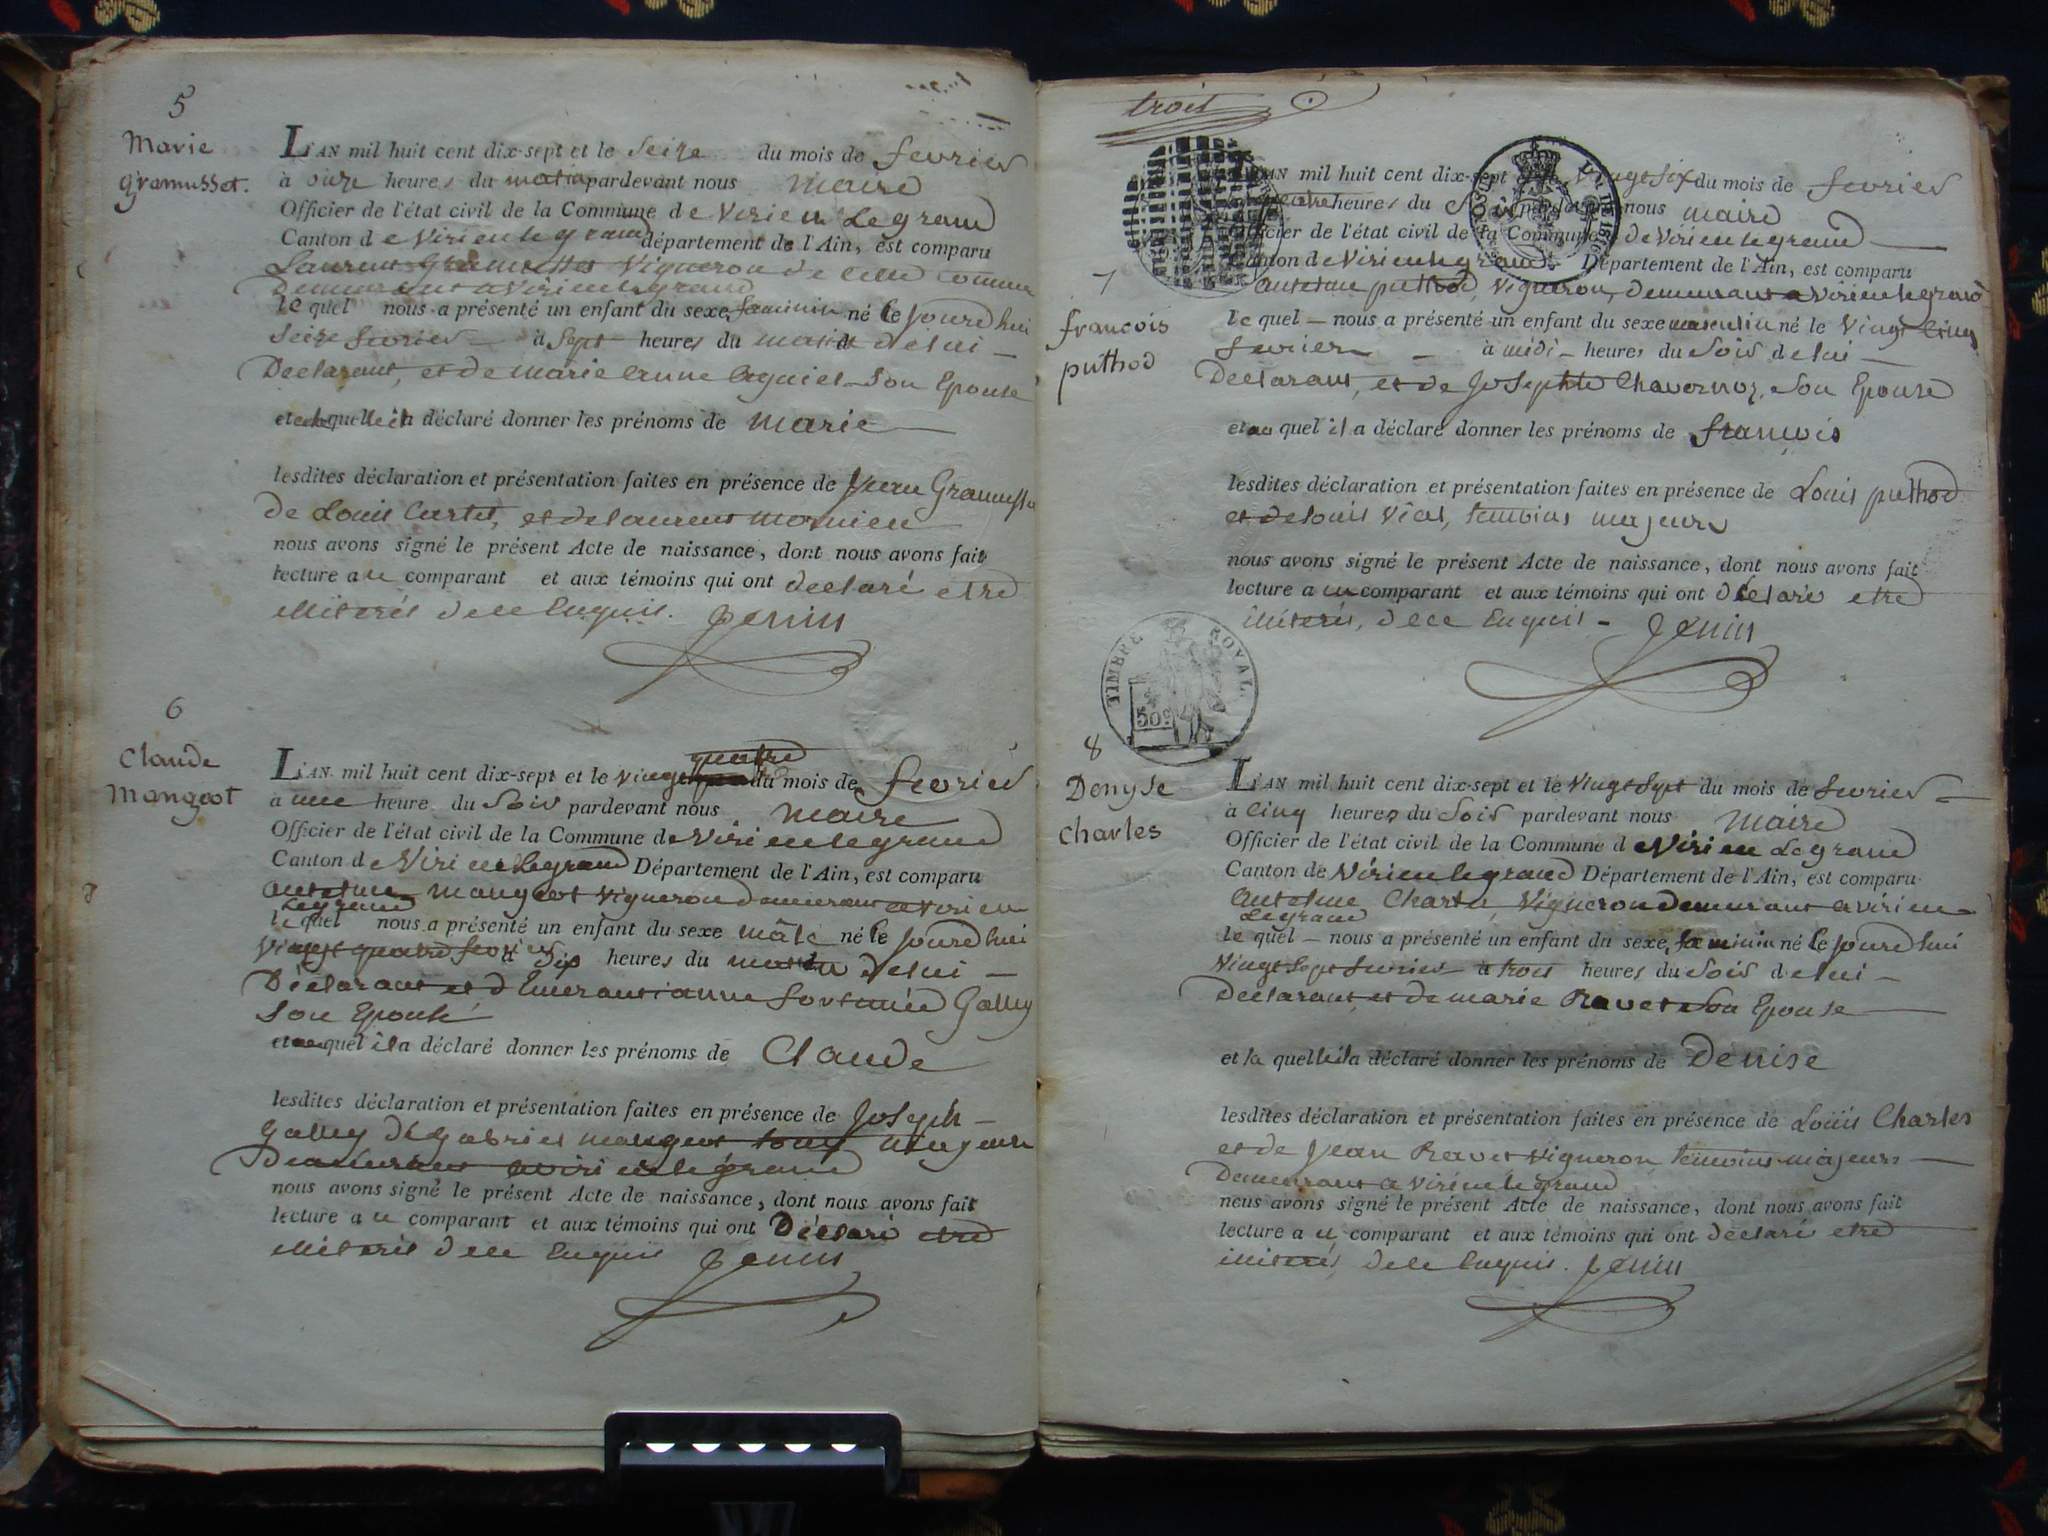 5
Marie
gramusset.
L'AN mil huit cent dix-sept et le Seize du mois de fevrier
à onze heures du matin pardevant nous maire
Officier de l'état civil de la Commune de Virieu Le grand
Canton de Virieu le grand département de l'Ain, est comparu
Laurent Gramusset Vigneron de cette commune
Demeurant a Virieu le grand
le quel nous a présenté un enfant du sexe feminin né le jourd'hui
Seize fevrier à Sept heures du matin de lui
Declarant, et de Marie Anne son Epouse
et a la quelle il a déclaré donner les prénoms de Marie
lesdites déclaration et présentation faites en présence de Jean Gramusset
de Louis et de laurent
nous avons signé le présent Acte de naissance, dont nous avons fait
lecture au comparant et aux témoins qui ont declaré etre
illiterés de ce Enquis. Jenin
6
Claude
Mangeot
L'AN mil huit cent dix-sept et le Vingt quatre du mois de fevrier
à une heure du Soir pardevant nous maire
Officier de l'état civil de la Commune de Virieu le grand
Canton de Virieu Le grand Département de l'Ain, est comparu
antelme mangeot Vigneron demeurant a Virieu
Legrand
le quel nous a présenté un enfant du sexe mâle né le jourd'hui
Vingt quatre fevrier à Dix heures du matin de lui
Déclarant et d'Emerantianne fortunée Galley
Son Epouse
et au quel il a déclaré donner les prénoms de Claude
lesdites déclaration et présentation faites en présence de Joseph
Galley de Gabriel mangeot tous majeurs
Demeurant a virieu le grand
nous avons signé le présent Acte de naissance, dont nous avons fait
lecture au comparant et aux témoins qui ont Déclaré etre
illiterés de ce Enquis Jenin
trois
7
françois
puthod
L'AN mil huit cent dix-sept et le Vingt Six du mois de fevrier
à quatre heures du Soir pardevant nous maire
Officier de l'état civil de la Commune de Virieu le grand
Canton de Virieu le grand Département de l'Ain, est comparu
antelme puthod, Vigneron, demeurant a Virieu le grand
le quel nous a présenté un enfant du sexe masculin né le Vingt Cinq
fevrier à midi heures du Soir de lui
Declarant, et de Josephte Chavornoz, Son Epouse
et au quel il a déclaré donner les prénoms de françois
lesdites déclaration et présentation faites en présence de Louis puthod
et de louis Vial, temoins majeurs
nous avons signé le présent Acte de naissance, dont nous avons fait
lecture au comparant et aux témoins qui ont déclaré etre
illiterés, de ce Enquis Jenin
TIMBRE ROYAL
50c
8
Denyse
Charles
L'AN mil huit cent dix-sept et le Vingt Sept du mois de fevrier
à Cinq heures du Soir pardevant nous Maire
Officier de l'état civil de la Commune de Virieu Le grand
Canton de Virieu le grand Département de l'Ain, est comparu
Antelme Charles, Vigneron demeurant a virieu
Le grand
le quel nous a présenté un enfant du sexe feminin né le jourd'hui
Vingt Sept fevrier à trois heures du Soir de lui
Declarant, et de marie Ravet Son Epouse
et la quelle il a déclaré donner les prénoms de Denise
lesdites déclaration et présentation faites en présence de Louis Charles
et de Jean Ravet Vigneron, temoins majeurs
Demeurant a Virieu le grand
nous avons signé le présent Acte de naissance, dont nous avons fait
lecture au comparant et aux témoins qui ont déclaré etre
illiterés, de ce Enquis. Jenin